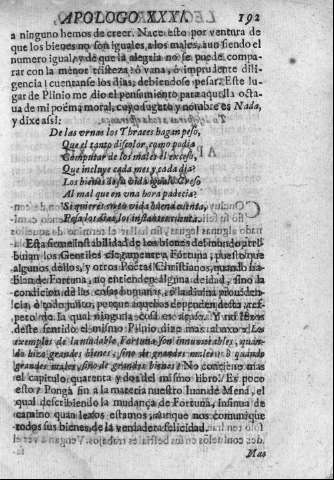 APOLOGO XXXI. 192
a ninguno hemos de creer. Nace esto por ventura de
que los bienes no son iguales a los males, aun siendo el
numero igual, y de que la alegria no se puede compa-
rar con la menor tristeza: ò vana, ò imprudente dili-
gencia! cuentanse los dias, debiendose pesar. Este lu-
gar de Plinio me dio el pensamiento para aquella octa-
ua de mi poema moral, cuyo sugeto y nombre es Nada,
y dixe assi:
De las vrnas los Thraces hagan peso,
Que el tanto
Computar de los males el excesso,
Que incluye cada mes y cada dia:
Los bienes de su vida iguale Creso,
Al mal que en vna hora padecia;
Si quieres en tu vida buena cuenta,
Pesa los dias, los instantes cuenta.
Esta firme instabilidad de los bienes del mundo atri-
buian los Gentiles ciegamente a Fortuna, puesto que
algunos dellos, y otros Poetas Christianos, quando ha-
blan de Fortuna, no entienden alguna deidad, sino la
condicion de las cosas humanas, ò la diuina prouiden-
cia, ò todo junto, porque muchos dependen desta
pero, de la qual ninguna cosa
deste sentido el mismo Plinio dize mas abaxo: Los
exemplos de la mudable Fortuna son innumerables,
do hizo grandes bienes, sino de grandes males: ò quando
grandes males, sino de grandes bienes? No
el capitulo quarenta y dos del mismo libro. Es poco
esto? Ponga fin a la materia nuestro Iuan de Mena, el
qual describiendo la mudança de Fortuna, insinua de
camino quan lexos estamos, aunque nos comunique
todos sus bienes de la verdadera felicidad.
Mas